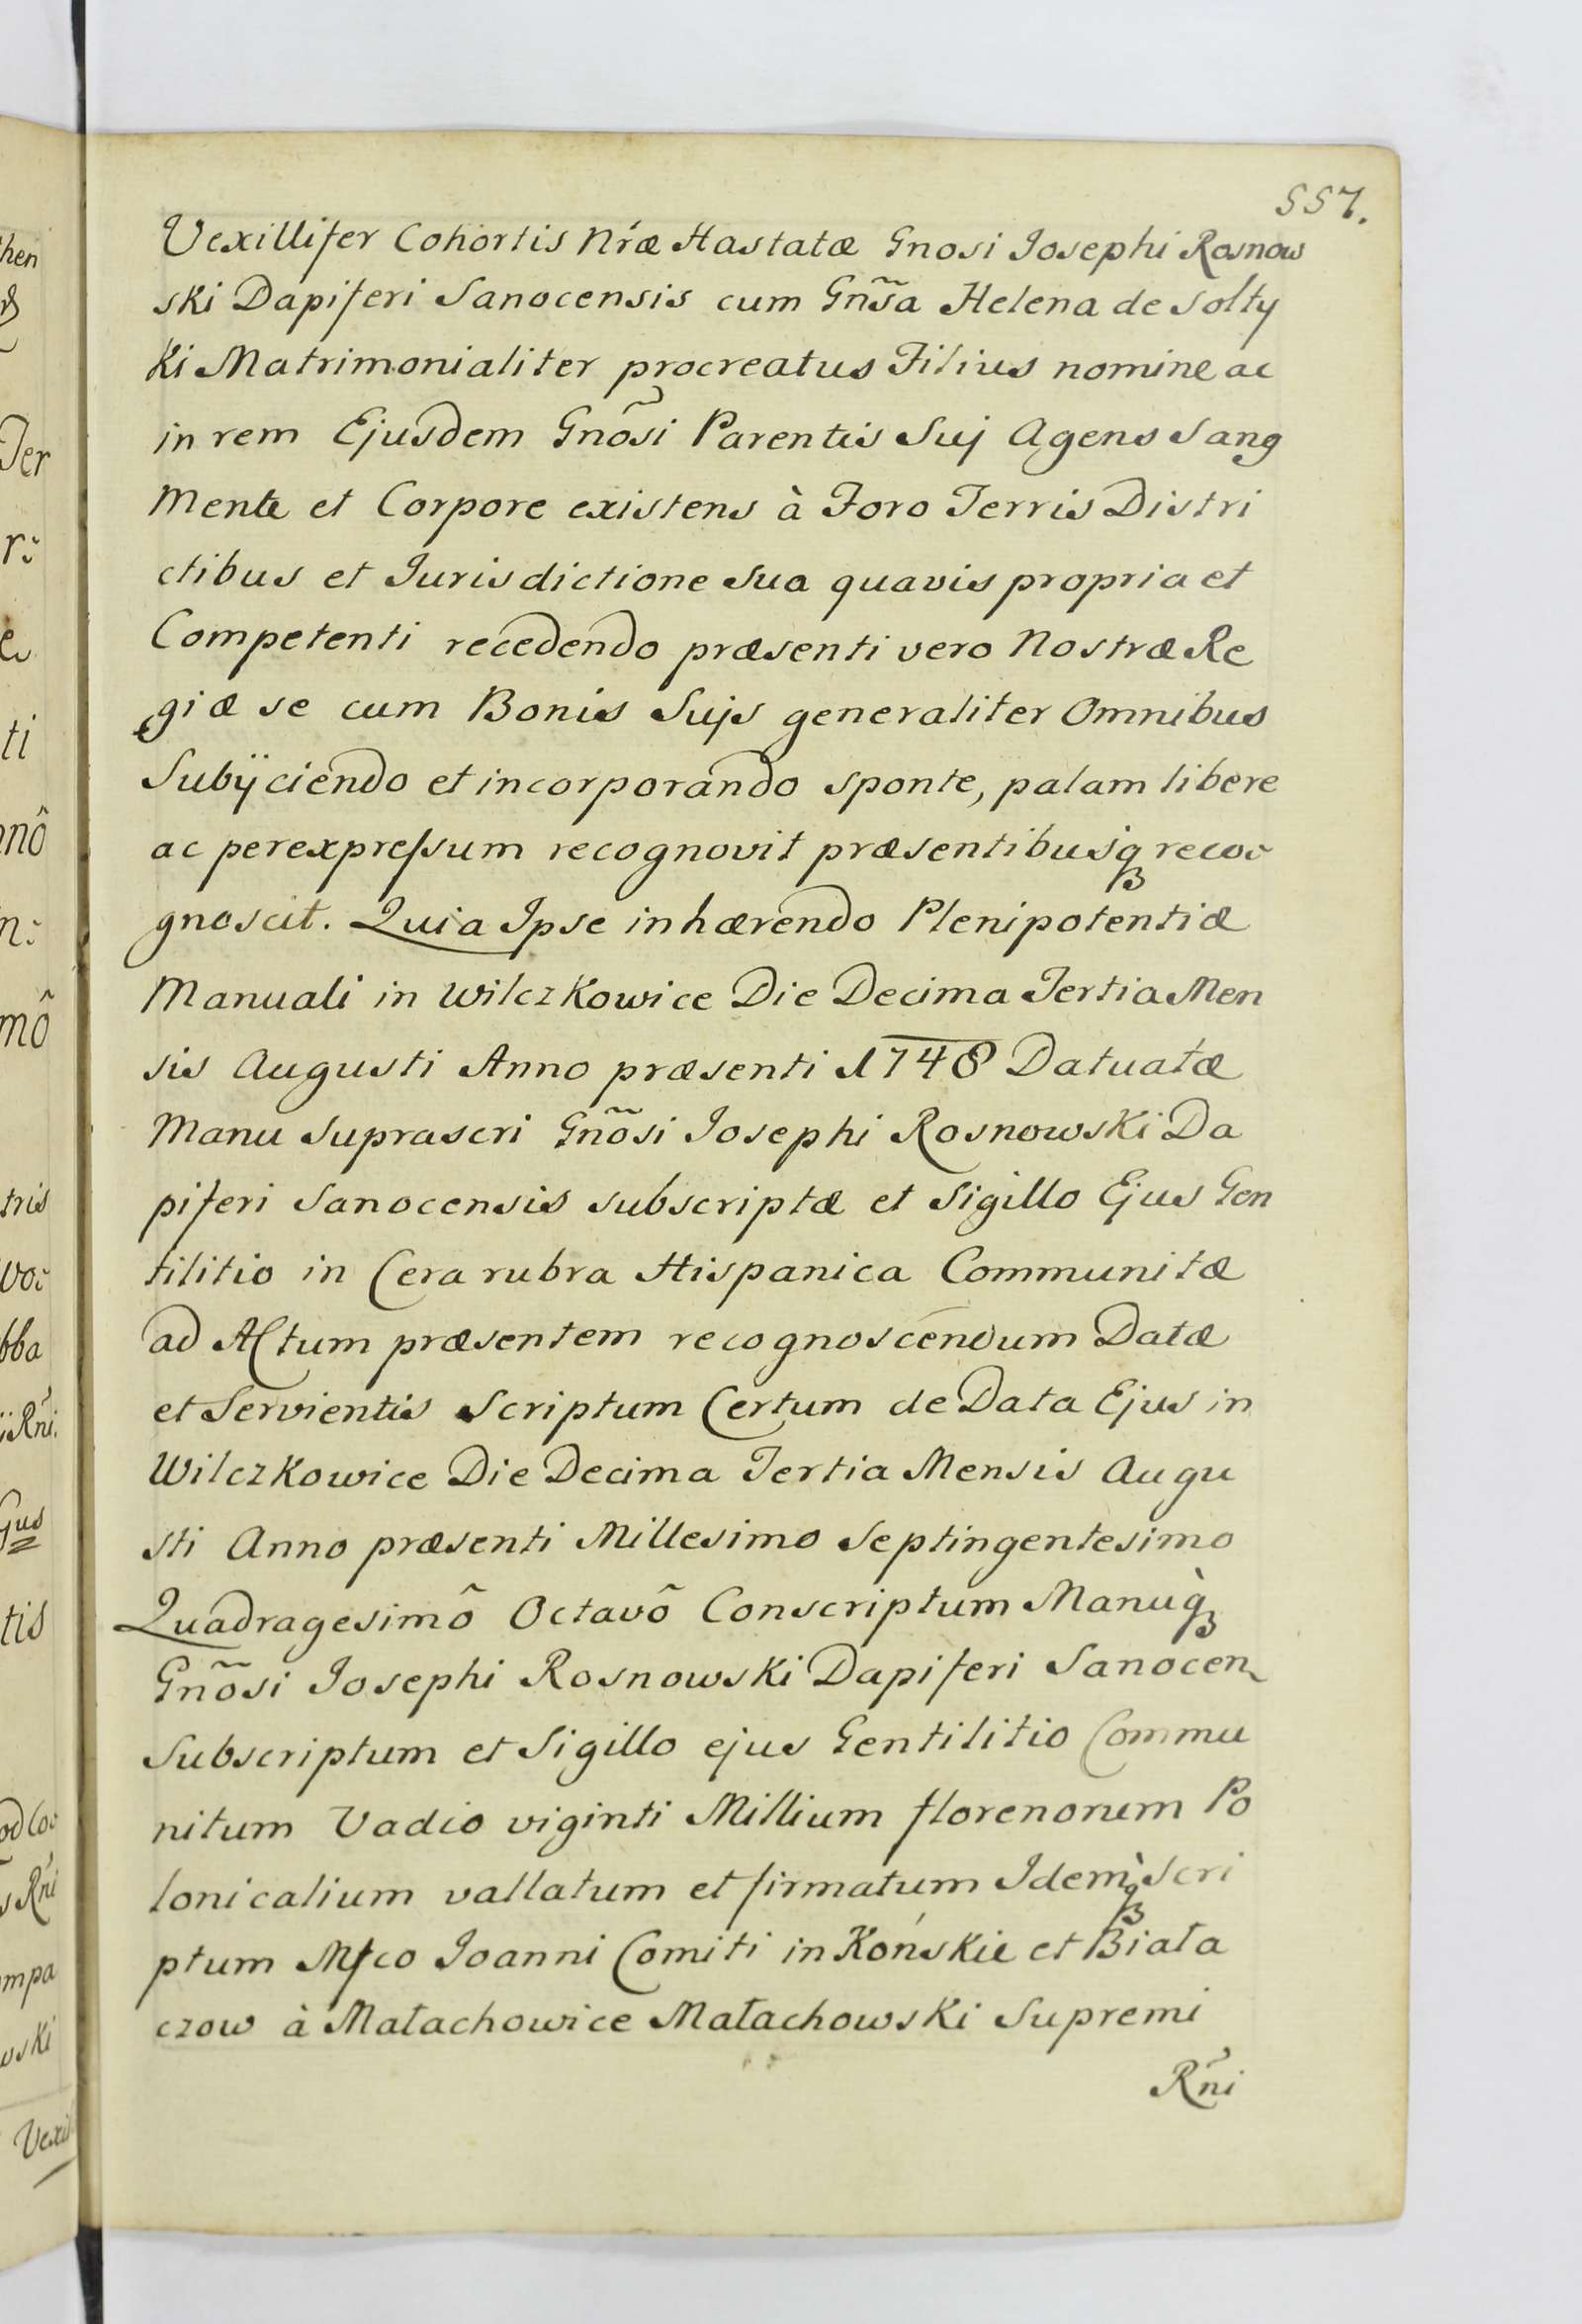 557.
Vexillifer Cohortis Nr̃æ Hastatæ Gnosi Josephi Rosnow
ski Dapiferi Sanocensis cum Gñsa Helena de Solty
ki Matrimonialiter procreatus Filius nomine ac
in rem Ejusdem Gnõsi Parentis Suj Agens Sang
Mente et Corpore existens à Foro Terris Distri
ctibus et Jurisdictione Sua quavis propria et
Competenti recedendo præsenti vero Nostræ Re
giæ se cum Bonis Sujs generaliter Omnibus
Subÿciendo et incorporando sponte, palam libere
ac perexpressum recognovit præsentibusq̀ recoc
gnoscit. Quia Ipse inhærendo Plenipotentiæ
Manuali in Wilczkowice Die Decima Tertia Men
sis Augusti Anno præsenti 1748 Datuatæ
Manu Suprascri Gñõsi Josephi Rosnowski Da
piferi Sanocensis subscriptæ et Sigillo Ejus Gen
tilitio in Cera rubra Hispanica Communitæ
ad Actum præsentem recognoscendum Datæ
et Servientis Scriptum Certum de Data Ejus in
Wilczkowice Die Decima Tertia Mensis Augu
sti Anno præsenti Millesimo Septingentesimo
Quadragesimõ Octavõ Conscriptum Manuq̀
Gñosi Josephi Rosnowski Dapiferi Sanocen
Subscriptum et Sigillo ejus Gentilitio Commu
nitum Vadio viginti Millium florenorum Po
lonicalium vallatum et firmatum Idemq̀ Scri
ptum Mfco Joanni Comiti in Końskie et Biała
czow à Małachowice Małachowski Supremi
Rñi